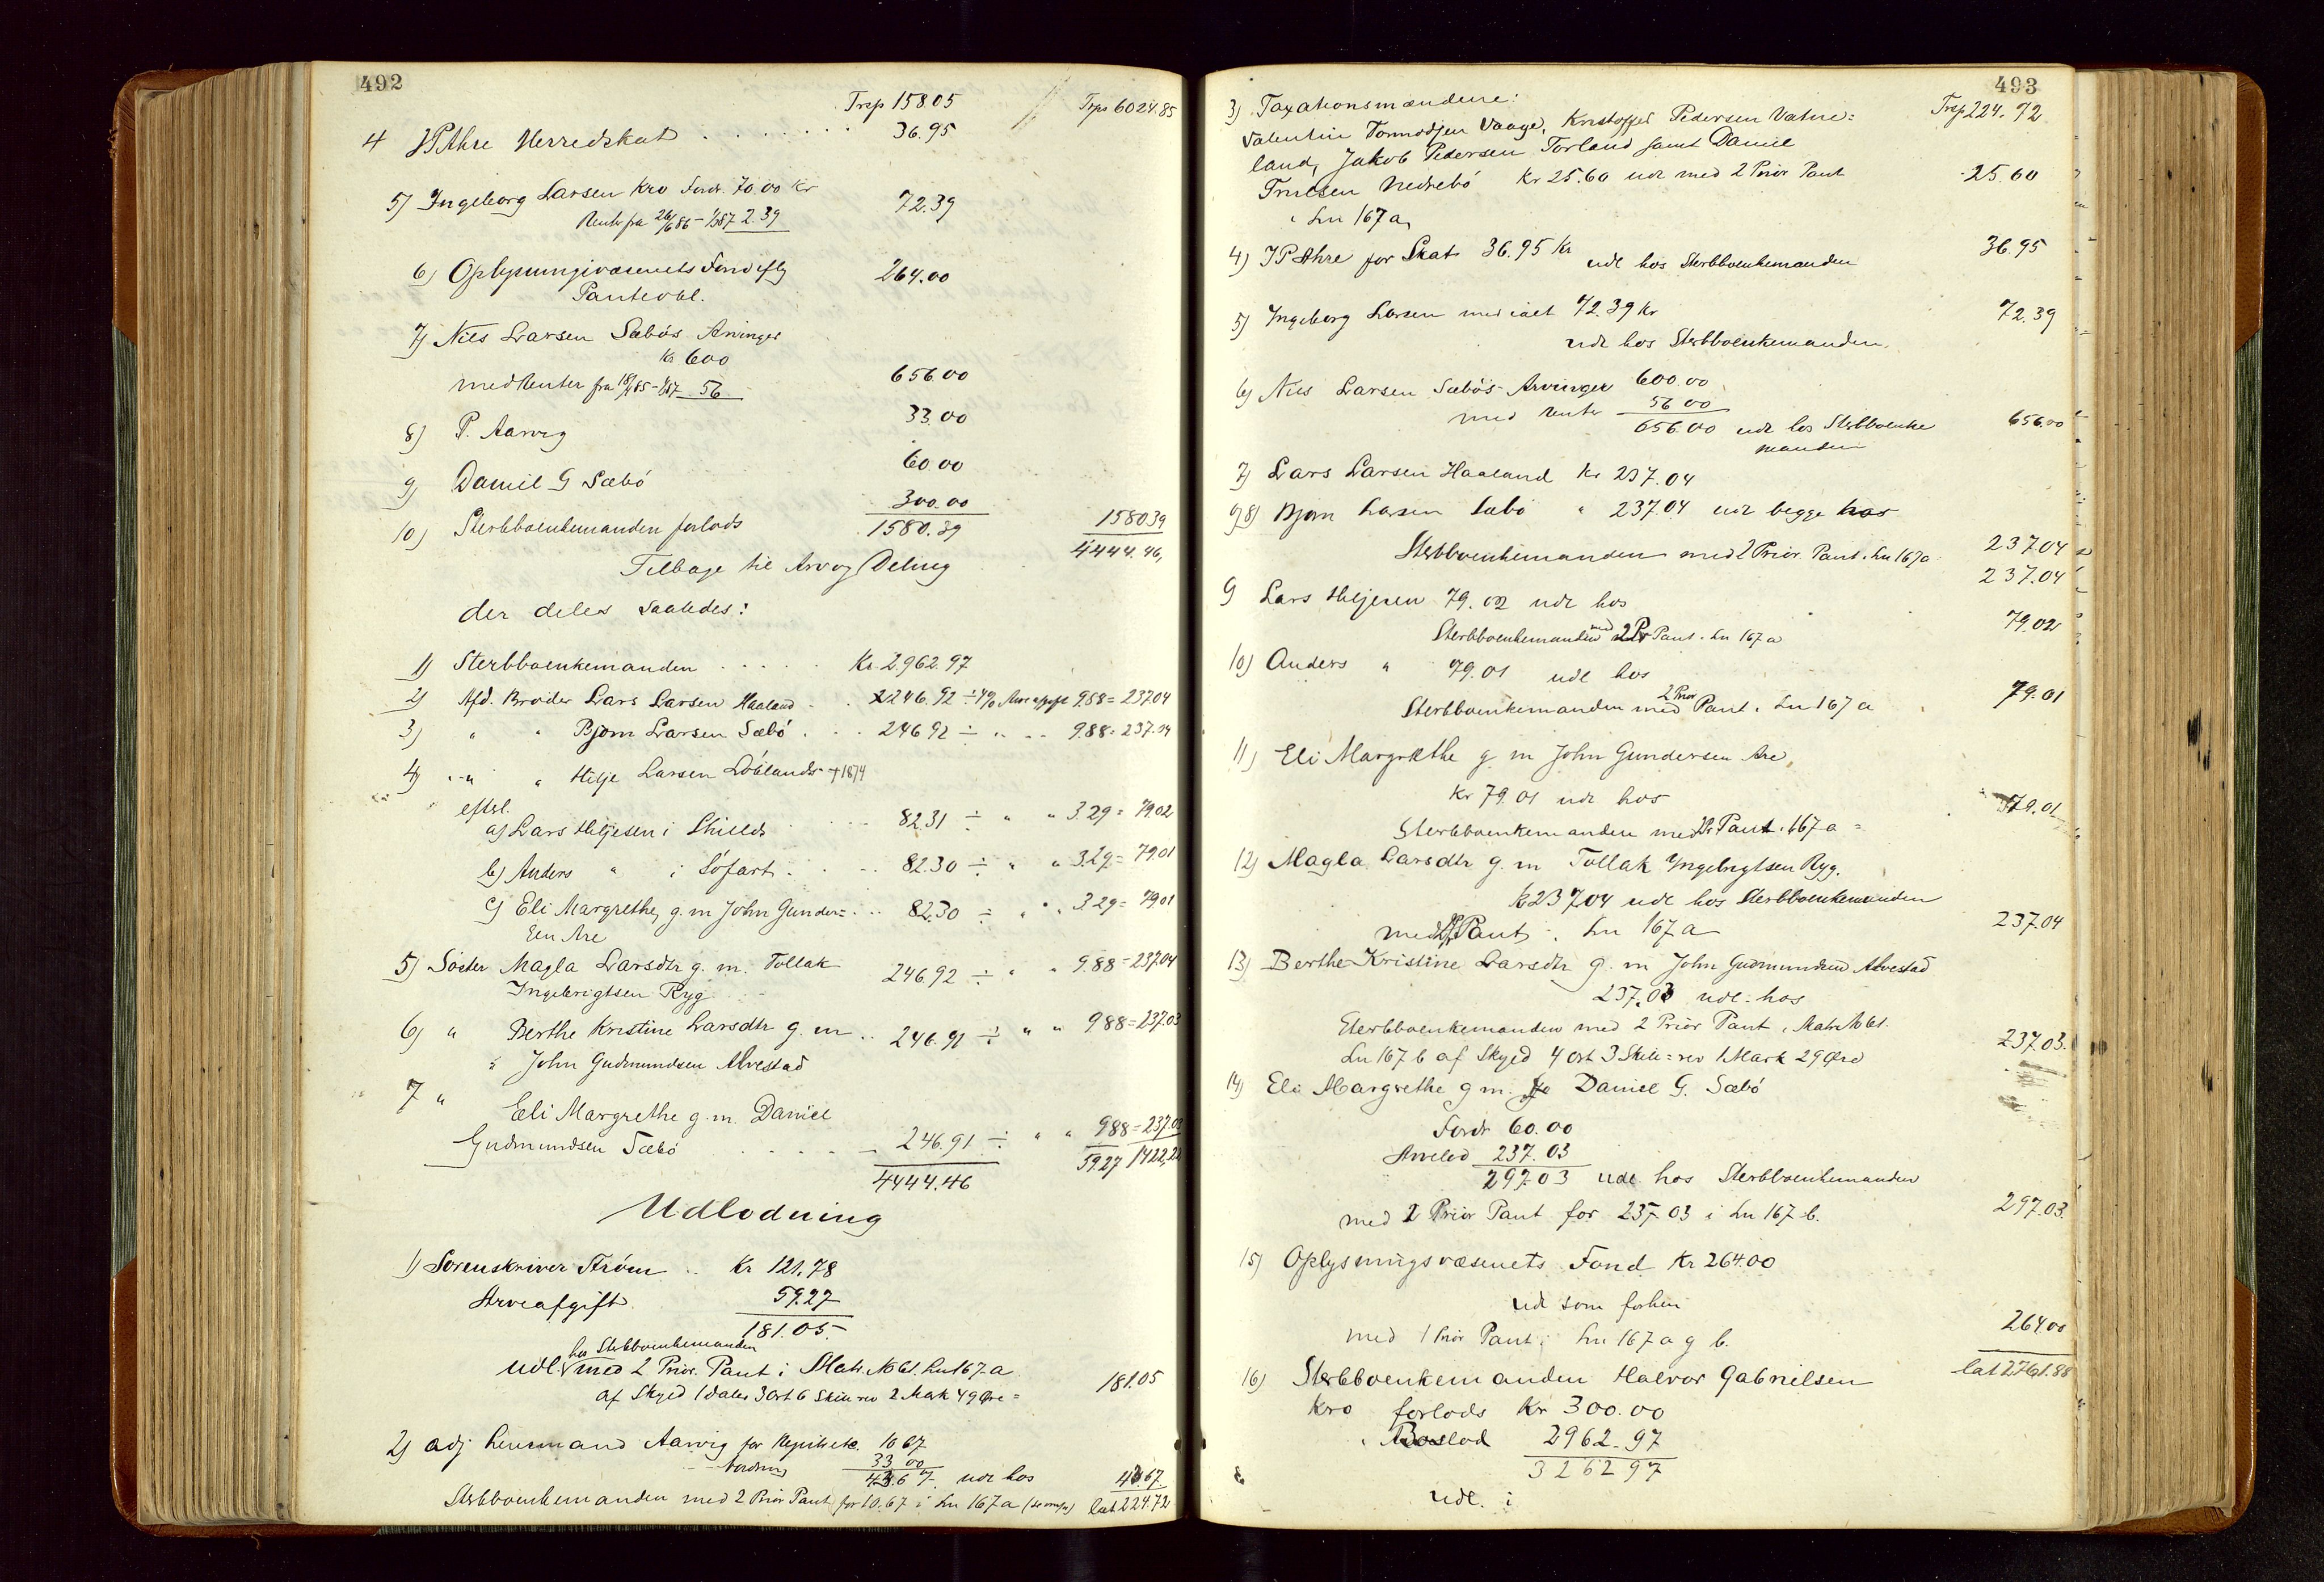 492
Trsp 158.05 Trsp 6024.85
4 JPAhre Herredskat . . . . . . . 36.95
5) Ingeborg Larsen Kro Fordr. 70.00 Kr
Renter fra 26/6 86 - 1/3 87 2.39 72.39
6) Oplysningsvæsenets Fond iflg 264.00
Panteobl.
7) Niels Larsen Sæbös Arvinger
Kr 600
med Renter fra 18/4 85 - 1/3 87 56 656.00
8) P. Aarvig 33.00
9) Daniel G Sæbö 60.00
10) Sterbboenkemanden forlods 300.00
1580.39 1580 39
Tilbage til Arv og Deling 4444.46
der deles saaledes:
1) Sterbboenkemanden . . . . . Kr. 2962.97
2) Afd. Broder Lars Larsen Haaland . . 246.92 ÷ 4% Arveafgift 9.88 = 237.04
3) " " Bjørn Larsen Sæbö . . . 246 92 ÷ " " 9.88 = 237.04
4) " " Helje Larsen Löölands †1874
efterl.
a) Lars Heljesen i Skieeds 82.31 ÷ " " 3.29 = 79.02
b) Anders " i Söfart . . . 82.30 ÷ " " 3.29 = 79.01
c) Eli Margrethe, g. m John Gunder= . . 82.30 ÷ " " 3.29 = 79.01
sen Are
5) Söster Magla Larsdtr g. m. Tollak 246.92 ÷ " " 9.88 = 237.04
Ingebrigtsen Ryg
6) " Berthe Kristine Larsdtr g. m . . 246.91 ÷ " " 9 88 = 237.03
John Gudmundsen Alvestad
7 " Eli Margrethe g. m. Daniel
Gudmundsen Sæbö . . . . . 246.91 ÷ " " 9 88 = 237.03
4444.46 59.27 1422,22
Udlodning
1) Sorenskriver Ström . . Kr 121.78
Arveafgift 59.27
181.05
hos Sterbboenkemanden
udl. med 2 Prior. Pant i Matr. No 61. Ln 167. a
af Skyld 1 daler 3 Ort 6 Skill rev 2 Mark 49 Øre = 181.05
2) adj Lensmand Aarvig for Regnsk etc. 10 67
Fordring 33 00
43.67 udl hos 43.67
Sterbboenkemanden med 2 Prior Pant for 10.67 i Ln 167 a Lat 224.72
493
Trsp 224.72
3) Taxationsmændene:
Valentin Tormodsen Vaage, Kristoffer Pedersen Vatne=
land, Jakob Pedersen Torland samt Daniel
Truelsen Nedrebö Kr 25.60 udl med 2 Prior Pant 25.60
i Ln 167 a
4) JPAhre for Skat 36.95 Kr udl hos Sterbboenkemanden 36.95
5) Ingeborg Larsen med ialt 72.39 Kr 72.39
udl hos Sterbboenkemanden.
6) Niels Larsen Sæbös Arvinger 600.00
med Renter 56 00
656.00 udl hos Sterbboenke 656.00
manden
7) Lars Larsen Haaland Kr 237.04
8) Bjørn Larsen Sæbö " 237.04 udl begge hos
Sterbboenkemanden med 2 Prior. Pant i Ln 167 a 237.04
237.04
9 Lars Heljesen 79.02 udl hos
Sterbboenkemanden med 2 Pr Pant i Ln 167 a 79.02
10) Anders " 79.01 udl hos
Sterbboenkemanden med 2 Prior Pant i Ln 167 a 79.01
11) Eli Margrethe g m John Gundersen Are,
Kr 79.01 udl hos
Sterbboenkemanden med 2 Pr Pant i 167 a = 79.01
12) Magla Larsdtr g. m Tollak Yngebrigtsen Ryg.
Kr 237.04 udl hos Sterbboenkemanden
med 2 Pr Pant i Ln 167 a 237.04
13) Berthe Kristine Larsdtr g. m John Gudmundsen Alvestad
237.03 udl. hos
Sterbboenkemanden med 2 Prior Pant i Matr No 61.
Ln 167 b af Skyld 4 Ort 3 Skill = rev 1 Mark 29 Øre 237.03.
14) Eli Margrethe g m. Daniel G. Sæbö
Fordr 60.00
Arvelod 237.03
297.03 udl hos Sterbboenkemanden
med 2 Prior Pant for 237.03 i Ln 167 b. 297.03.
15) Oplysningsvæsenets Fond Kr 264.00
udl som forhen
med 1 Prior Pant i Ln 167 a g b. 264.00
Lat 2761.88
16) Sterbboenkemanden Halvor Gabrielsen
Kro forlods Kr 300.00
Boslod 2962.97
3262 97
udl. i